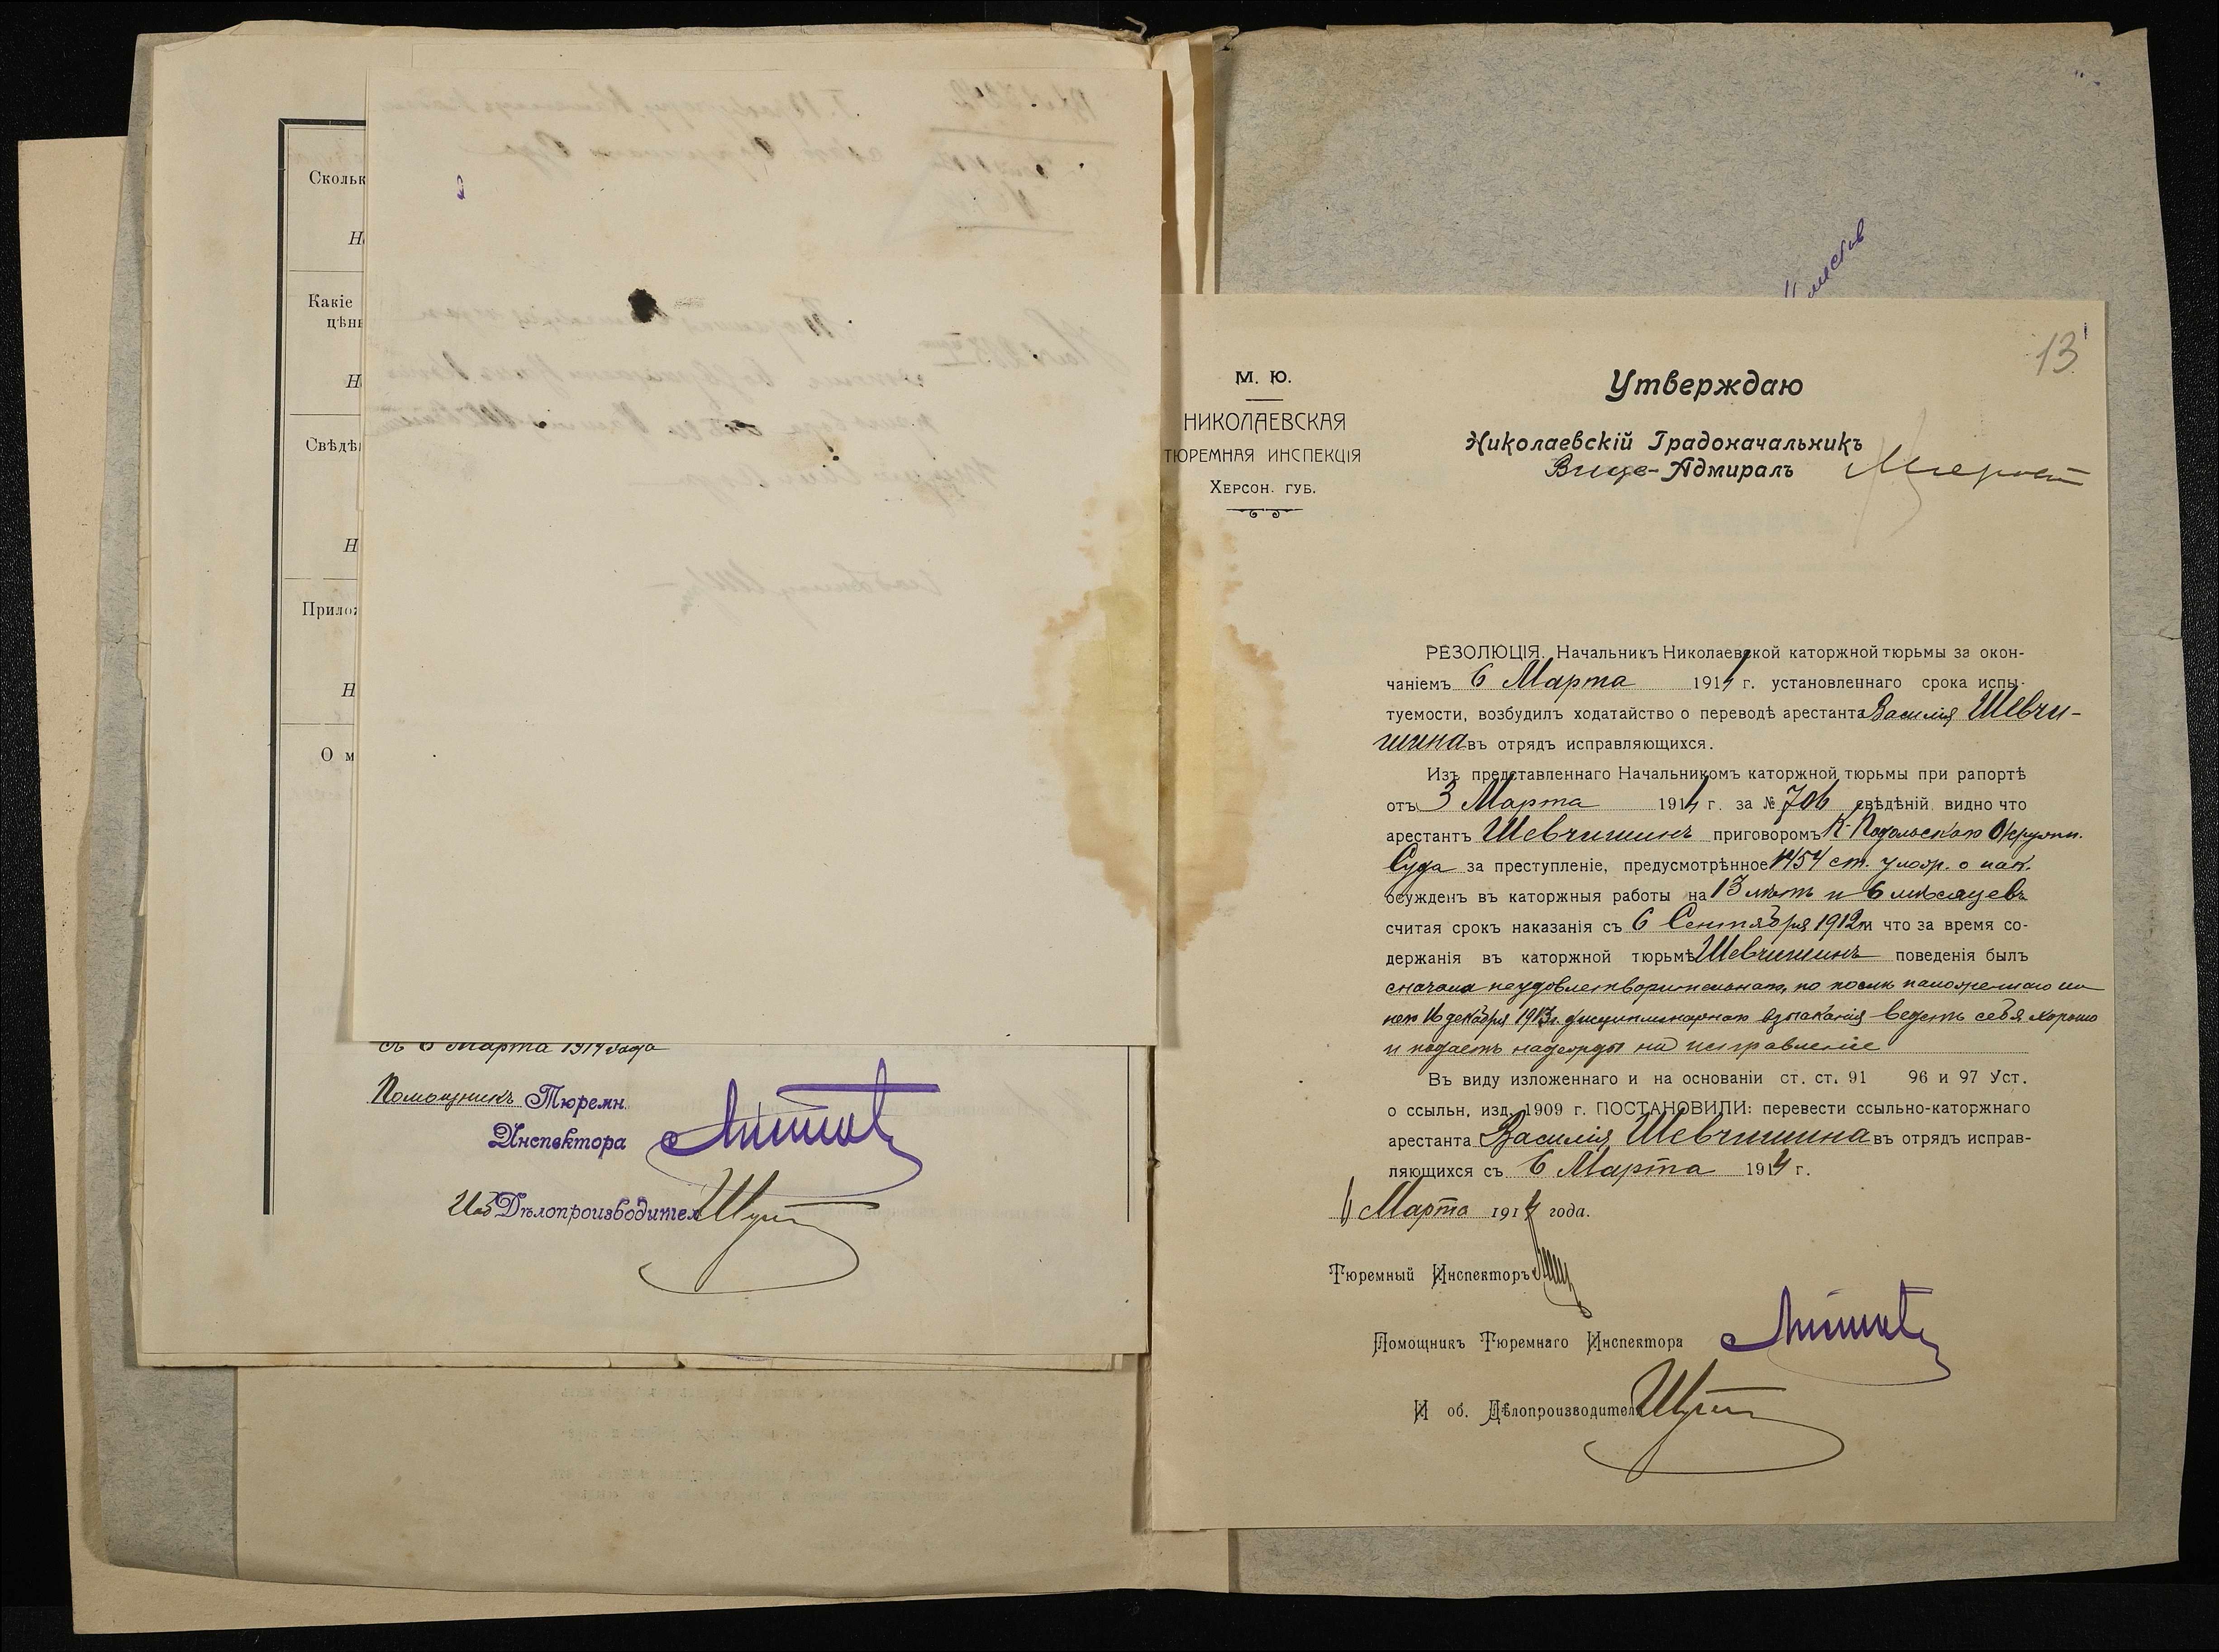 Скольк
Н
Какіе
цѣн
Н
Свѣдѣ
Н
Прилож
Н
О м
съ 6 Марта 1914 года
Помощникъ Тюремн.
Инспектора
И об Дѣлопроизводител
листов
13
М. Ю.
НИКОЛАЕВСКАЯ
ТЮРЕМНАЯ ИНСПЕКЦІЯ
Херсон. губ.
Утверждаю
Николаевскій Градоначальникъ
Вице-Адмиралъ
РЕЗОЛЮЦІЯ. Начальникъ Николаевской каторжной тюрьмы за окон-
чаніемъ 6 Марта 1914 г. установленнаго срока испы-
туемости, возбудилъ ходатайство о переводѣ арестанта Василія Шевчи-
шина въ отрядъ исправляющихся.
Изъ представленнаго Начальникомъ каторжной тюрьмы при рапортѣ
отъ 3 Марта 1914 г. за № 706 свѣдѣній видно что
арестантъ Шевчишинъ приговоромъ К-Подольскаго Окружн.
Суда за преступленіе, предусмотрѣнное 1454 ст. улож. о нак.
осужденъ въ каторжныя работы на 13 лѣтъ и 6 мѣсяцевъ
считая срокъ наказанія съ 6 Сентября 1912 и что за время со-
держанія въ каторжной тюрьмѣ Шевчишинъ поведенія былъ
сначала неудовлетворительнаго, но послѣ наложеннаго на
него 16 декабря 1913 г. дисциплинарнаго взысканія ведетъ себя хорошо
и подаетъ надежды на исправленіе
Въ виду изложеннаго и на основаніи ст. ст. 91 96 и 97 Уст.
о ссыльн, изд. 1909 г. ПОСТАНОВИЛИ: перевести ссыльно-каторжнаго
арестанта Василія Шевчишина въ отрядъ исправ-
ляющихся съ 6 Марта 1914 г.
6 Марта 1914 года.
Тюремный Инспекторъ
Помощникъ Тюремнаго Инспектора
И об. Дѣлопроизводителя